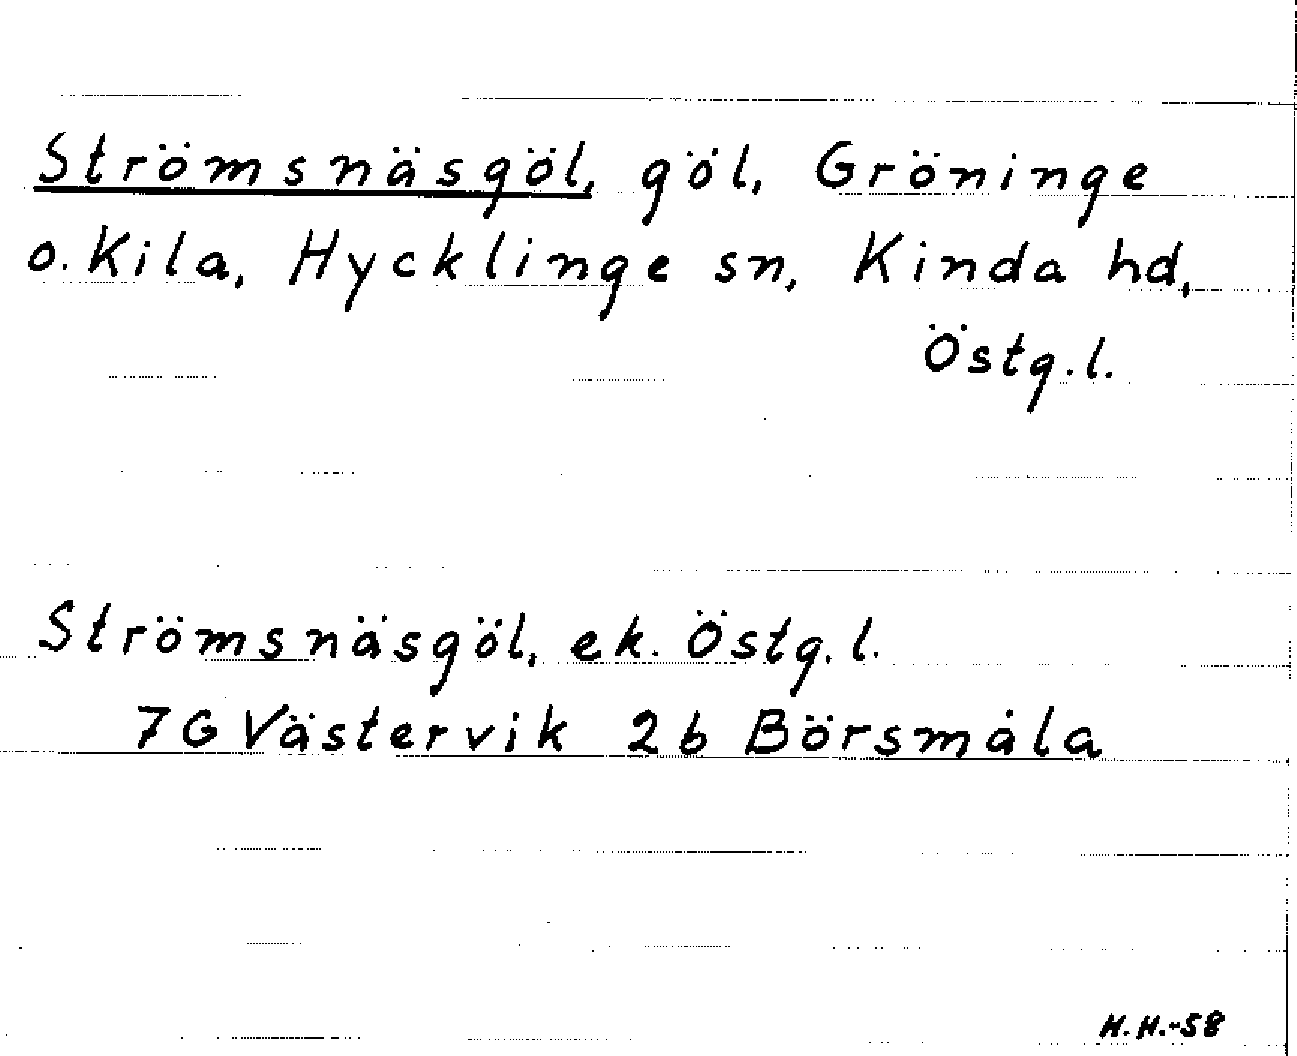 Strömsnäsgöl, göl, Gröninge
o. Kila, Hycklinge sn, Kinda hd,
Östg. l.
Strömsnäsgöl, ek. Östg. l.
7 G Västervik 2 b Börsmåla
H. H.-58